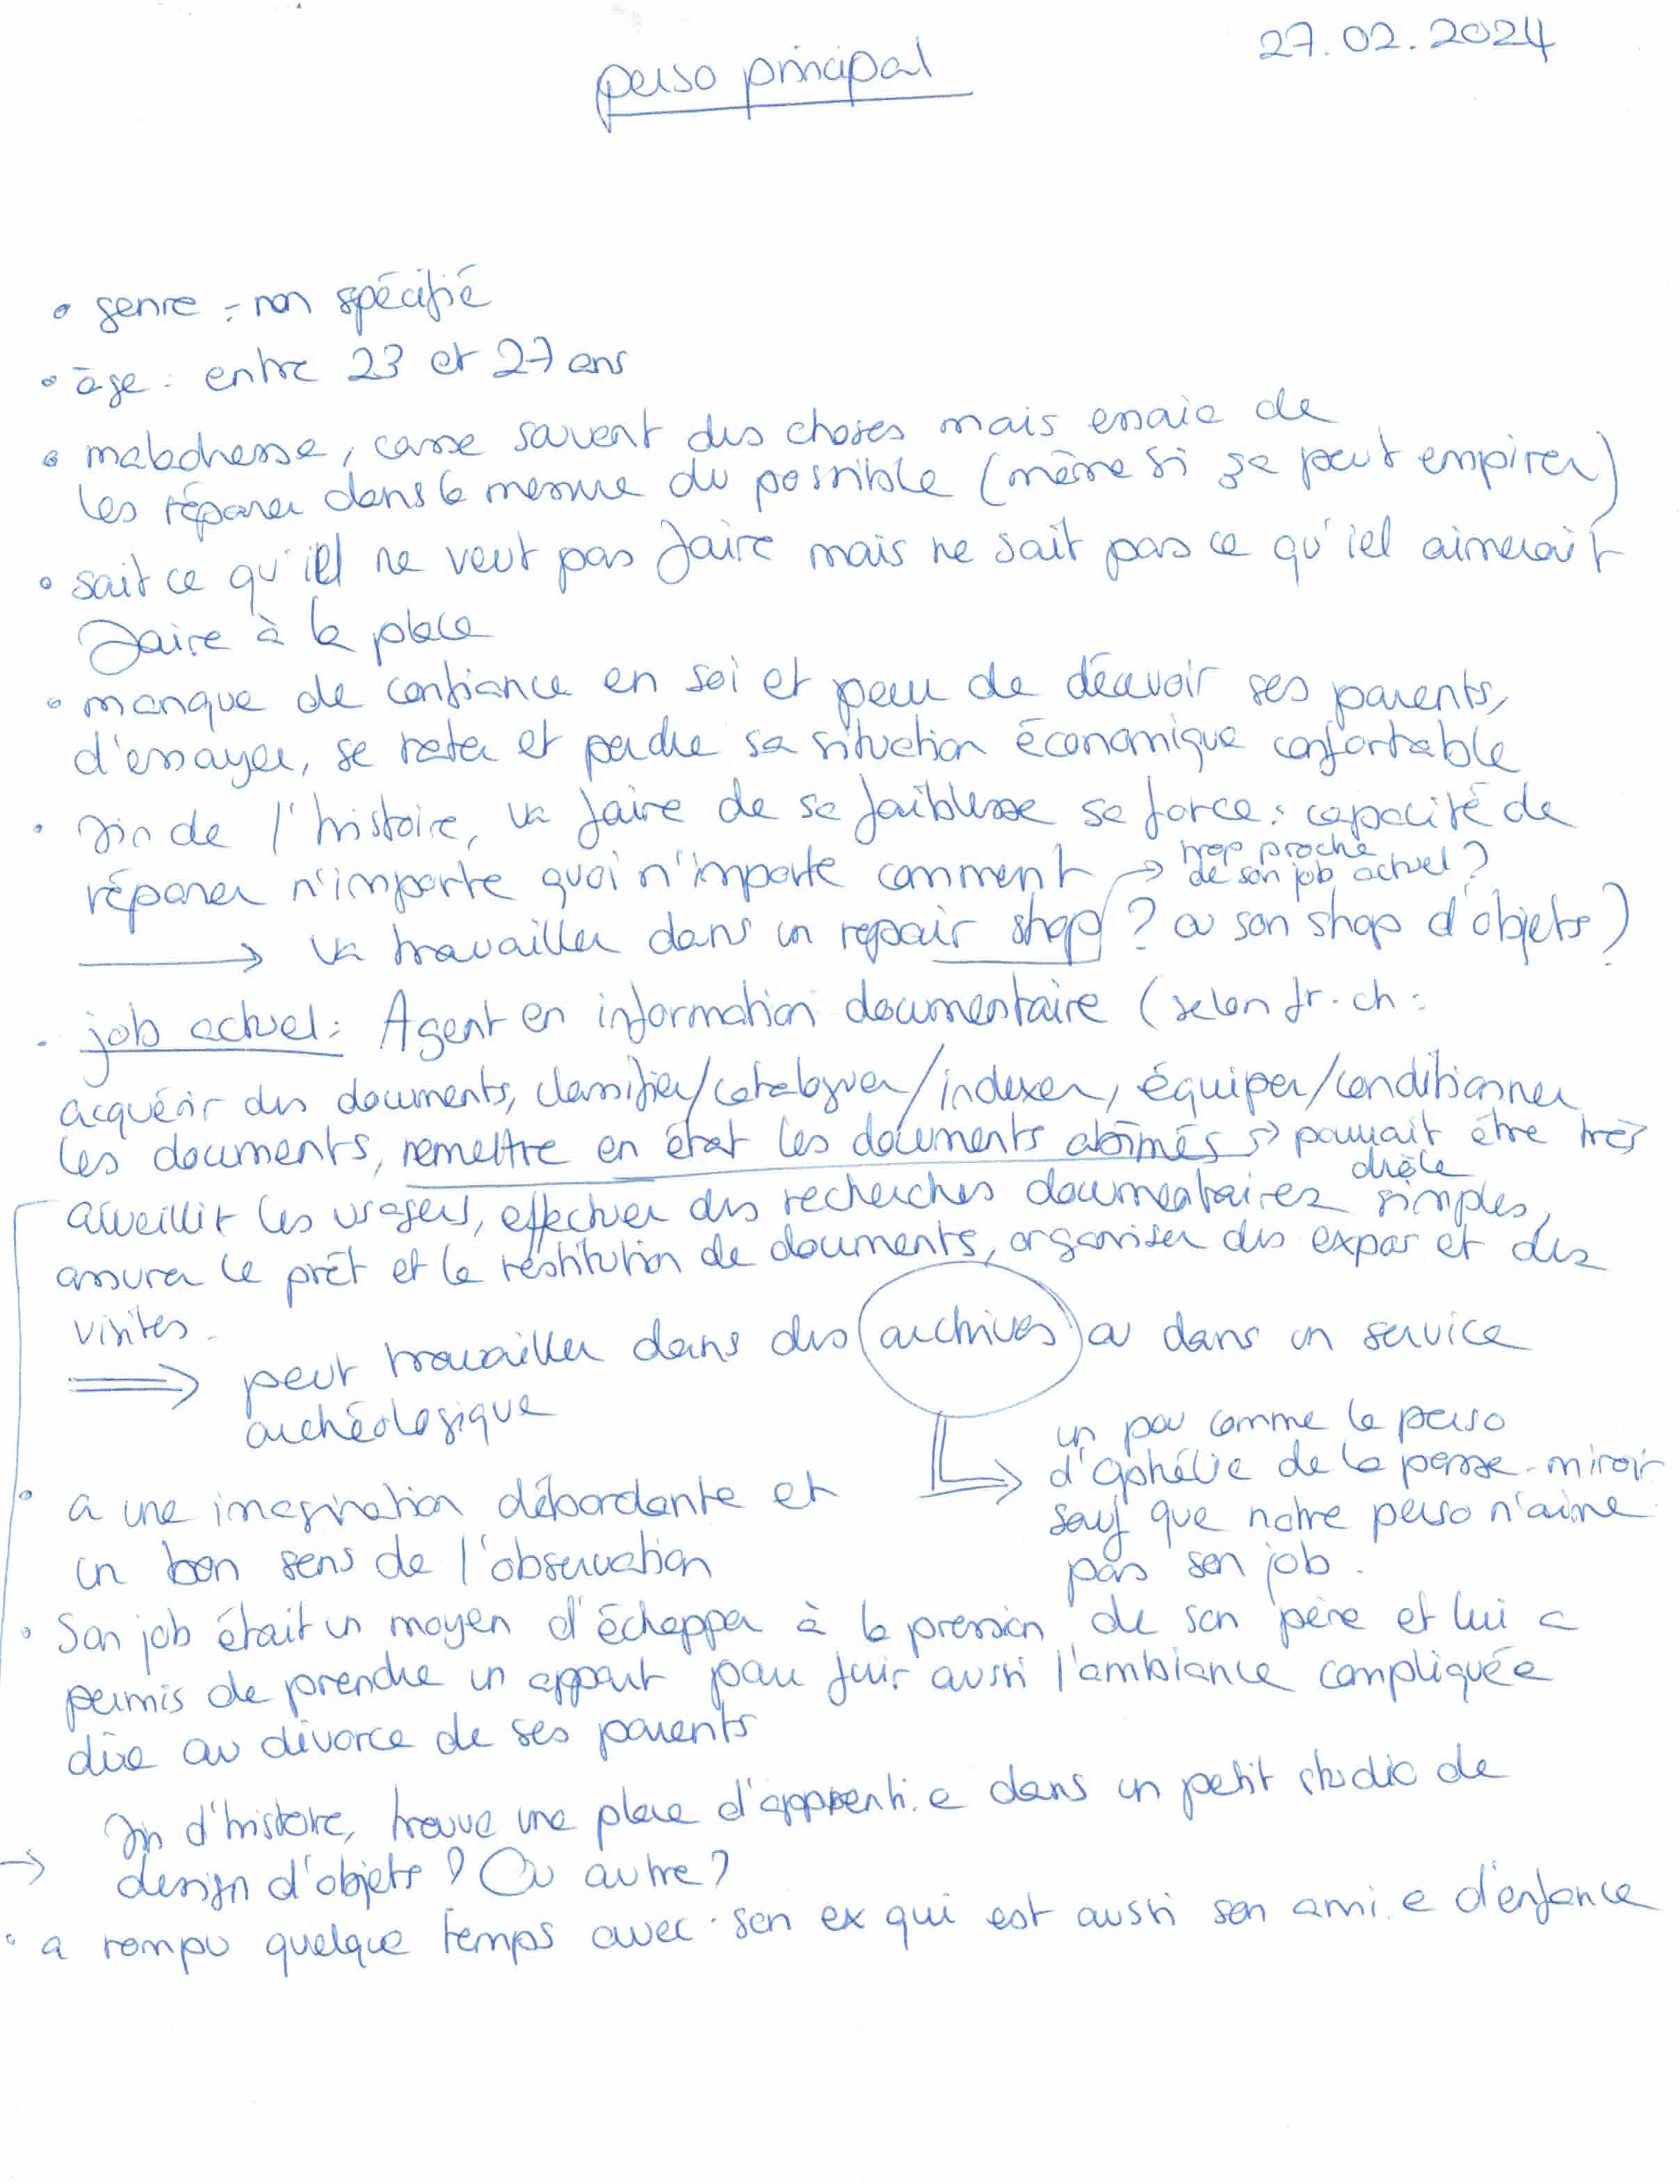 27.02.2024
perso principal
• genre : non spécifié
• âge : entre 23 et 27 ans
• maladresse, casse souvent des choses mais essaie de
les réparer dans la mesure du possible (même si ça peut empirer)
• sait ce qu'iel ne veut pas faire mais ne sait pas ce qu'iel aimerait
faire à la place
• manque de confiance en soi et peur de décevoir ses parents,
d'essayer, se rater et perdre sa situation économique confortable
• fin de l'histoire, va faire de sa faiblesse sa force : capacité de
réparer n'importe quoi n'importe comment → trop proche
de son job actuel ?
→ va travailler dans un repair shop ? ou son shop d'objets ?
• job actuel : Agent en information documentaire (selon fr.ch :
acquérir des documents, classifier/cataloguer/indexer, équiper/conditionner
les documents, remettre en état les documents abîmés → pourrait être très
drôle
accueillir les usagers, effectuer des recherches documentaires simples,
assurer le prêt et la restitution de documents, organiser des expos et des
visites.
⇒ peut travailler dans des archives ou dans un service
archéologique
↳ un peu comme le perso
d'Ophélie de la passe-miroir
sauf que notre perso n'aime
pas son job.
• a une imagination débordante et
un bon sens de l'observation
• Son job était un moyen d'échapper à la pression de son père et lui a
permis de prendre un appart pour fuir aussi l'ambiance compliquée
dûe au divorce de ses parents
→ fin d'histoire, trouve une place d'apprenti.e dans un petit studio de
design d'objets ? Ou autre ?
• a rompu quelque temps avec son ex qui est aussi son ami.e d'enfance